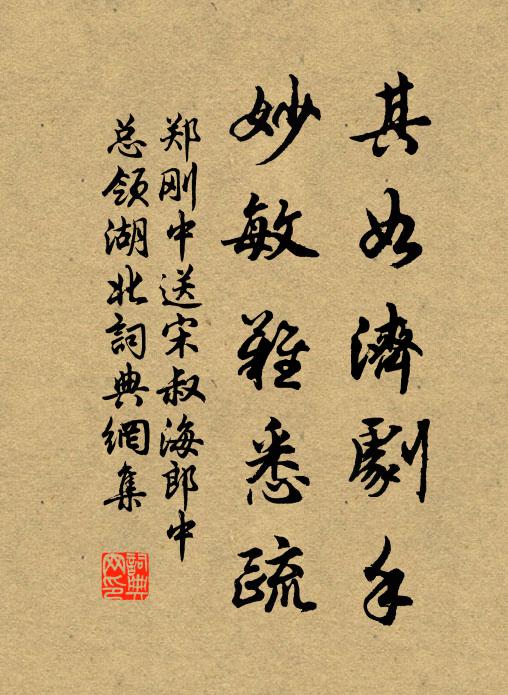 其如濟劇手
妙敏難悉疏
郑刚中送宋叔海郎中
总领湖北詞典網集
詞典
网印